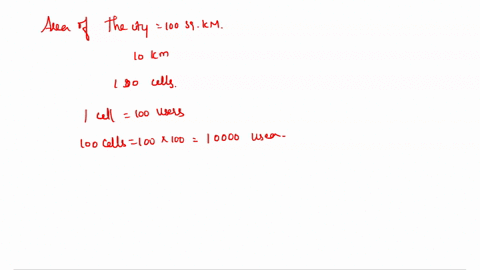 Area of the city = 100 sq.KM.
10 KM
100 cells.
1 cell = 100 users
100 cells = 100 × 100 = 10000 user.